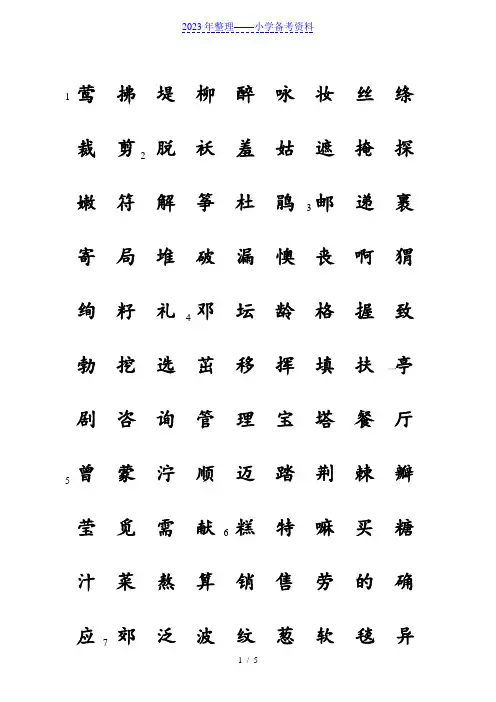 2023年整理——小学备考资料
1莺 拂 堤 柳 醉 咏 妆 丝 绦
裁 剪 2脱 袄 羞 姑 遮 掩 探
嫩 符 解 筝 杜 鹃 3邮 递 裹
寄 局 堆 破 漏 懊 丧 啊 猬
绚 籽 礼 4邓 坛 龄 格 握 致
勃 挖 选 茁 移 挥 填 扶 亭
剧 咨 询 管 理 宝 塔 餐 厅
5曾 蒙 泞 顺 迈 踏 荆 棘 瓣
莹 觅 需 献 6糕 特 嘛 买 糖
汁 菜 熬 算 销 售 劳 的 确
应 7郊 泛 波 纹 葱 软 毯 异
1 / 5